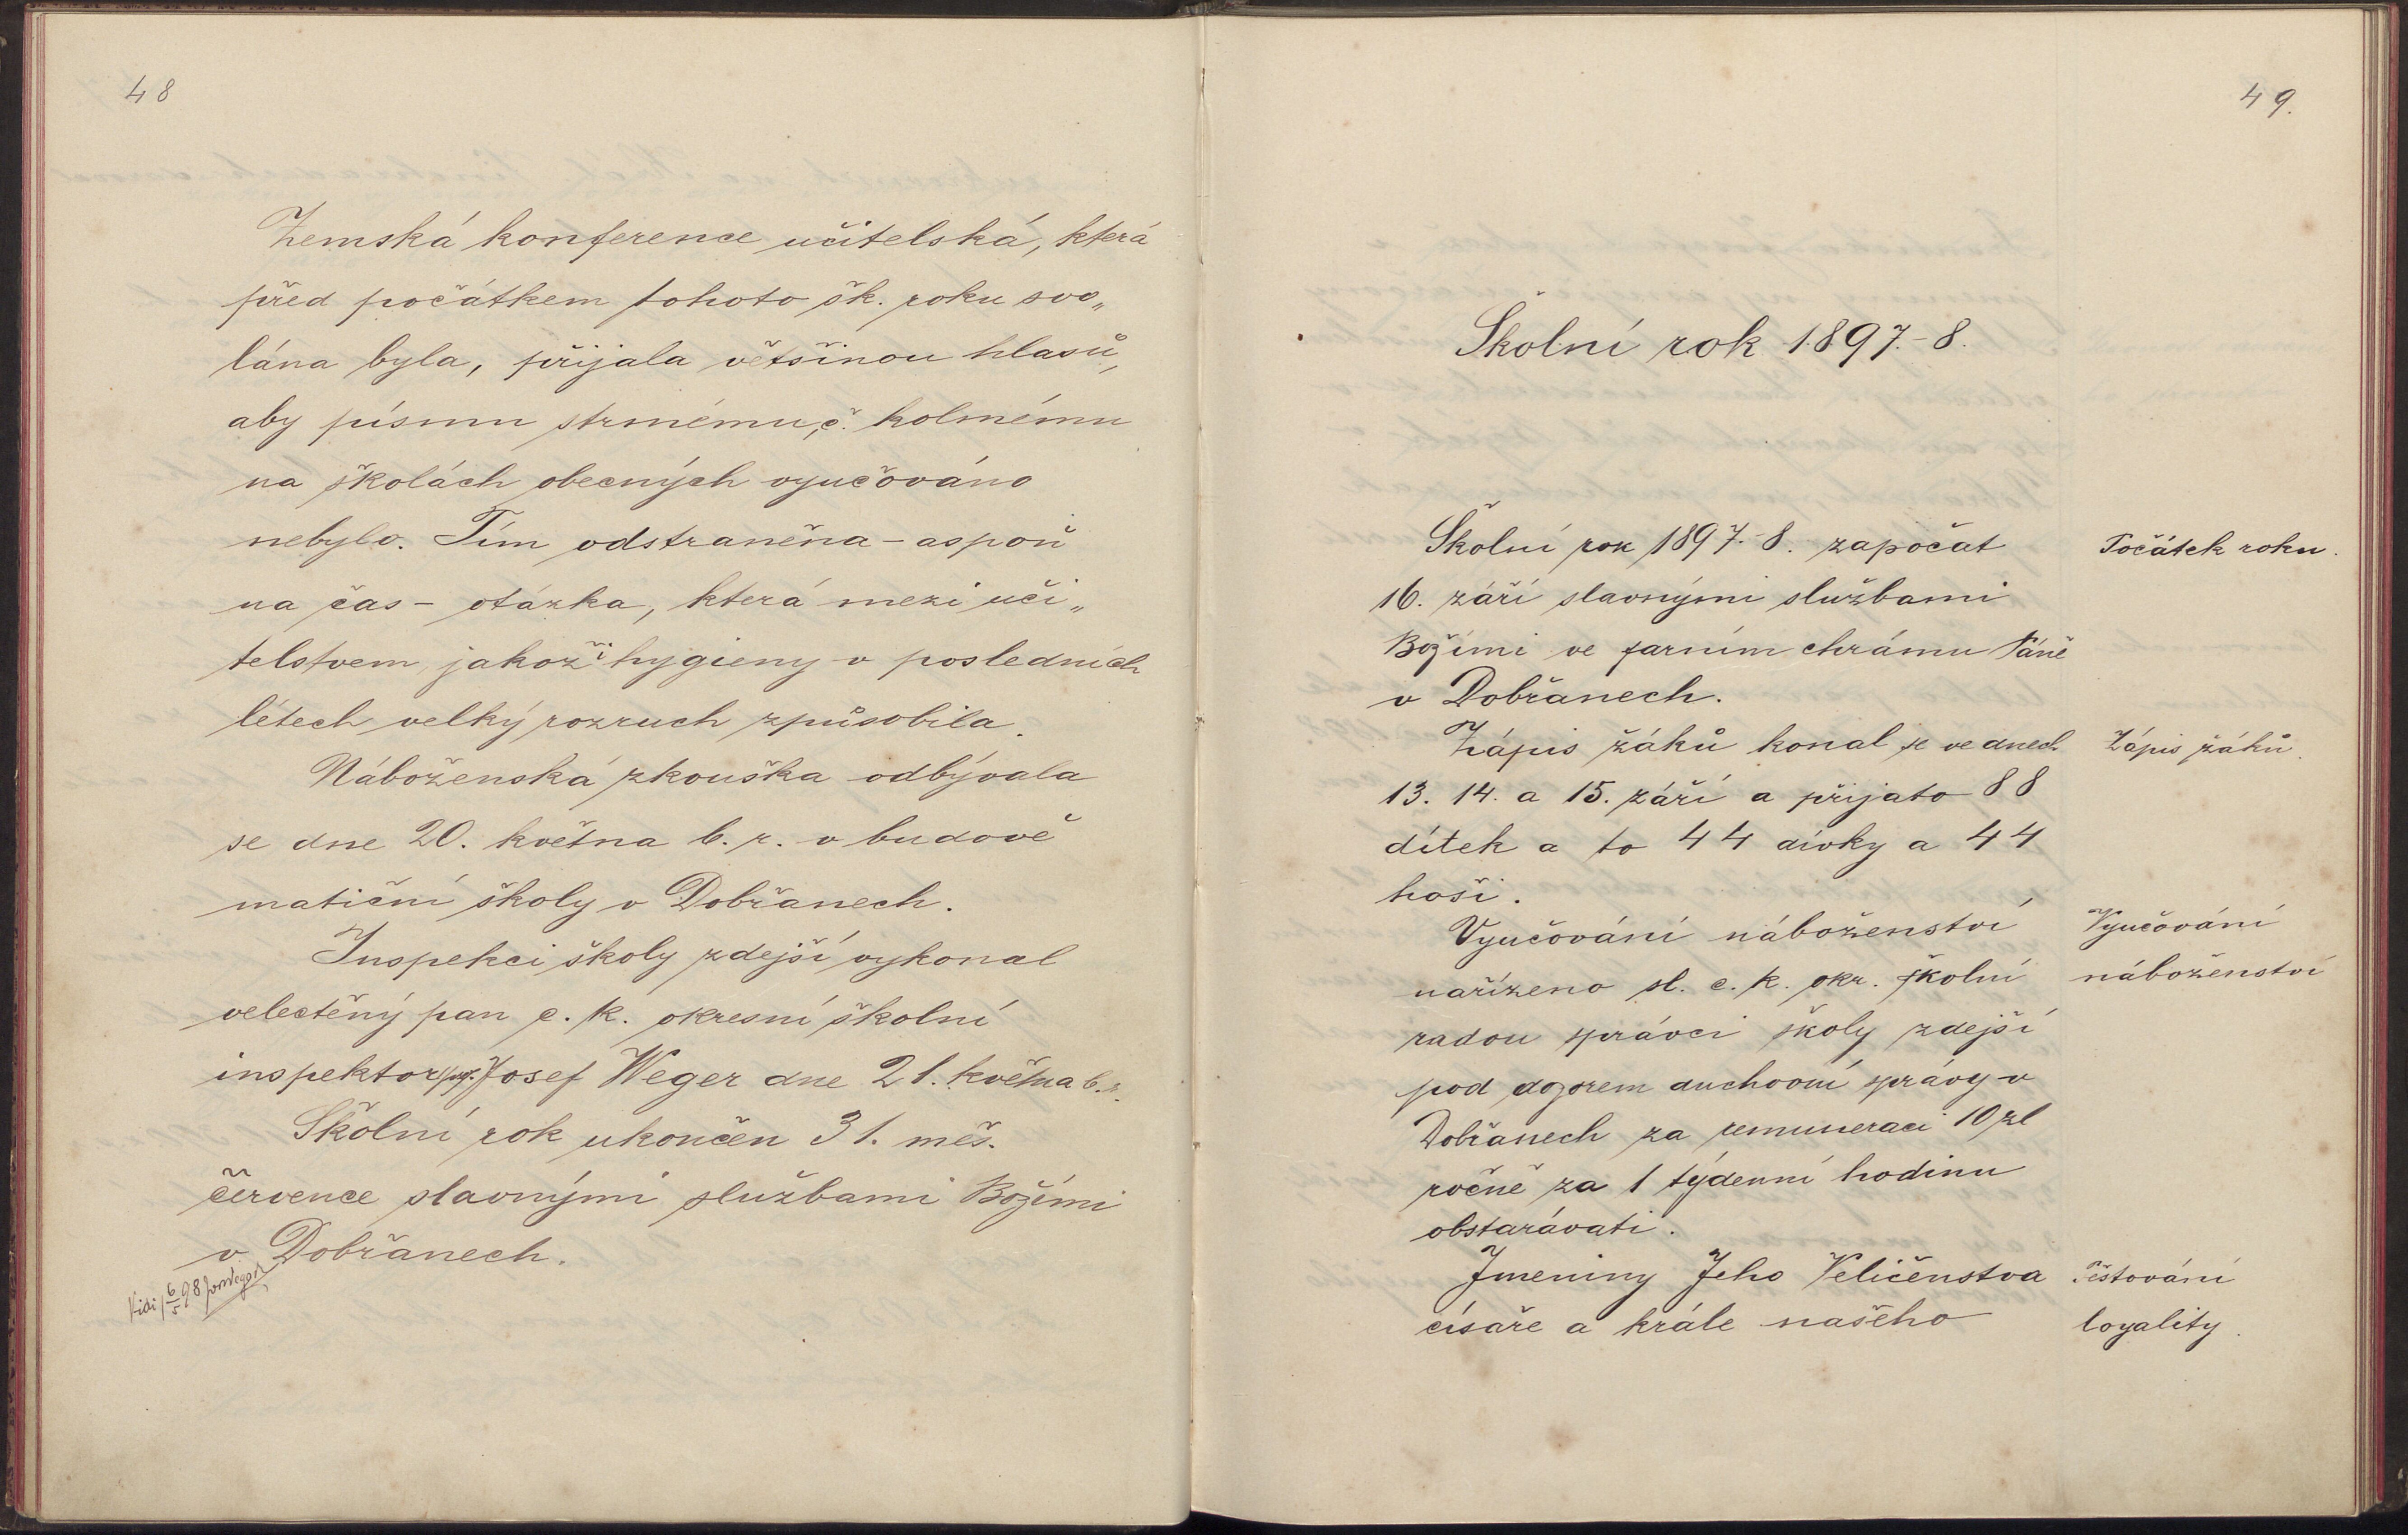 48
Zemská konference učitelská, která
před počátkem tohoto šk. roku svo„
lána byla, přijala většinou hlasů,
aby písmu strmému, č. kolmému
na školách obecných vyučováno
nebylo. Tím odstraněna – aspoň
na čas – otázka, která mezi uči„
telstvem, jakož i hygieny v posledních
létech velký rozruch způsobila.
Náboženská zkouška odbývala
se dne 20. května b. r. v budově
matiční školy v Dobřanech.
Inspekci školy zdejší vykonal
velectěný pan c. k. okresní školní
inspektor prof. Josef Weger dne 21. května b. r.
Školní rok ukončen 31. měs.
července slavnými službami Božími
v Dobřanech.
Vidi 6/5 98
49.
Školní rok 1897.-8.
Školní rok 1897.-8. započat
16. září slavnými službami
Božími ve farním chrámu Páně
v Dobřanech.
Počátek roku.
Zápis žáků konal se ve dnech
13. 14. a 15. září a přijato 88
dítek a to 44 dívky a 44
hoši.
Zápis žáků.
Vyučování náboženství
nařízeno sl. c. k. okr. školní
radou správci školy zdejší
pod dozorem duchovní správy v
Dobřanech za remuneraci 10 zl
ročně za 1 týdenní hodinu
obstarávati.
Vyučování
náboženství
Jmeniny Jeho Veličenstva
císaře a krále našeho
Pěstování
loyality.